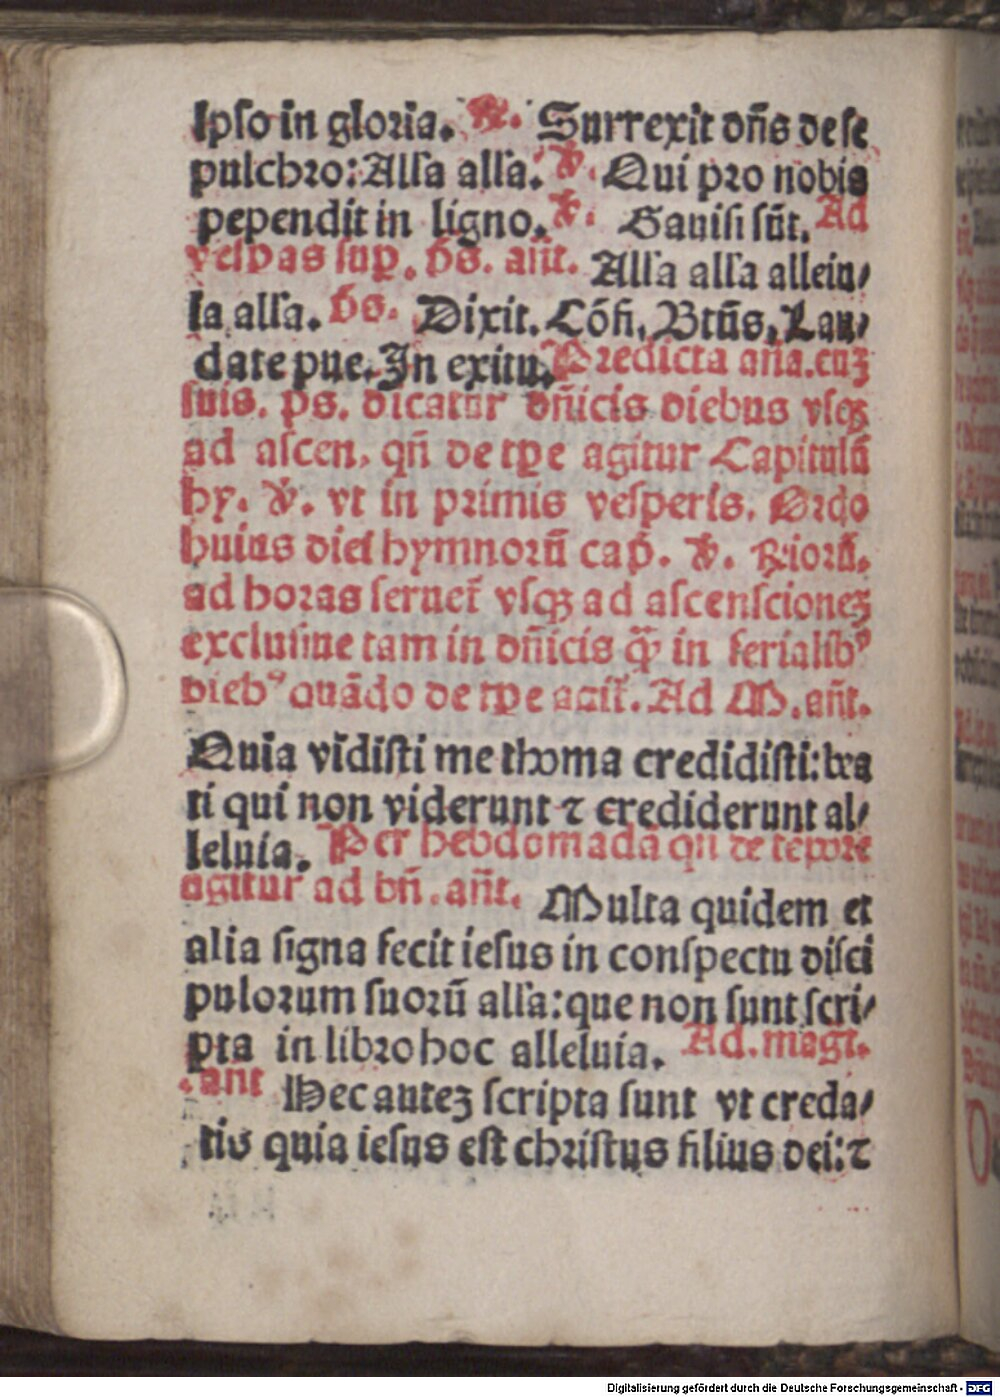 ipso in gloria. ℟. Surrexit dn̄s de se
pulchro: Alľa alľa. ℣. Qui pro nobis
pependit in ligno. ℣. Gauisi sūt. Ad
vespas suꝑ. p̄s. an̄t. Alľa alľa alleiu/
la alľa. p̄s. Dixit. Cōfi. Btūs. Lau/
date pue. In exitu. Predicta an̄a. cuꝫ
suis. ps. dicatur dn̄icis diebus vsqꝫ
ad ascen. qn̄ de tꝑe agitur Capitulū
hy. ℣. vt in primis vesperis. Ordo
huius diei hymnorū cap̄. ℣. ℟iorū.
ad horas seruet̄ vsqꝫ ad ascenscioneꝫ
exclusiue tam in dn̄icis q̄ꝫ in ferialibꝰ
diebꝰ quādo de tꝑe agit̄. Ad M. an̄t.
Quia vidisti me thoma credidisti: bea
ti qui non viderunt ⁊ crediderunt al/
leluia. Per hebdomadā qn̄ de tēpore
agitur ad bn̄. an̄t. Multa quidem et
alia signa fecit iesus in conspectu disci
pulorum suorū alľa: que non sunt scri/
pta in libro hoc alleluia. Ad. magt̄.
.an̄t Hec auteꝫ scripta sunt vt creda/
tis quia iesus est christus filius dei: ⁊
Digitalisierung gefördert durch die Deutsche Forschungsgemeinschaft - DFG